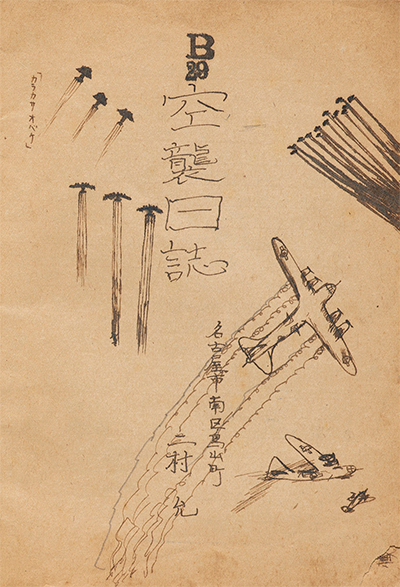 B
29
空襲日誌
「カラカサオバケ」
名古屋市南区
二村 允